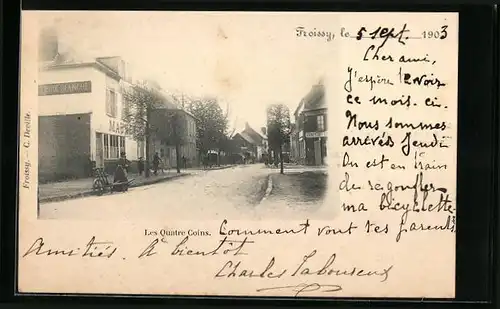 Froissy, le 5 Sept. 1903
Cher ami,
J'espère te voir
ce mois-ci.
Nous sommes
arrivés Jeudi
On est en train
de regonfler
ma bicyclette.
Comment vont tes parents
Amitiés. A bientôt
Charles Laboureux
Les Quatre Coins.
Froissy. — C. Deville.